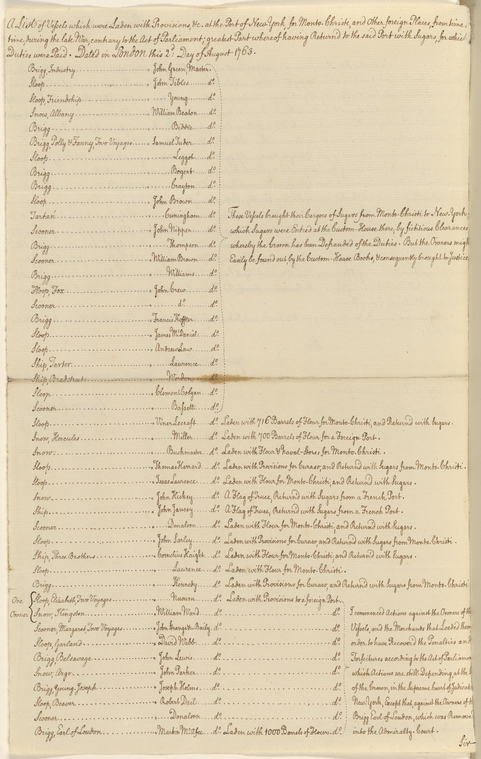 A List of Vessels which were Laden with Provisions, &c. at the Port of New York, for Monto-Christi, and Other foreign Places, from time,
time, during the late War, contrary to the Act of Parliament; greatest Part whereof having Return'd to the said Port with Sugars, for which
Duties were Paid. Dated in London this 2d. Day of August 1763.
Brigg Industry John Green Master
Sloop John Tibles do.
Sloop, Friendship Young do.
Snow, Albany William Beaton do.
Brigg do.
Brigg Polly & Fanny, Two Voyages Samuel Tuder do.
Sloop Leggot do.
Brigg Bogert do.
Brigg Crayton do.
Sloop John Brown do.
Tartan Cuningham do. These Vessels brought their Cargoes of Sugars from Monto-Christi to New-York,
Scooner John Nipper do. which Sugars were Entred at the Custom-House there, by fictitious Clearances
Brigg Thompson do. whereby the Crown has been Defrauded of the Duties. But the Owners might
Scooner William Brown do. Easily be found out by the Custom-House Books, & consequently brought to Justice.
Brigg Williams do.
Sloop, Fox John Crew do.
Scooner do. do.
Brigg Francis do.
Sloop James McDaniel do.
Sloop Andrew Law do.
Ship, Lawrence do.
Ship, Bradstreet do.
Sloop Clemont Colgan do.
Scooner Bassett do.
Sloop Viner Leycraft do. Laden with 716 Barrels of Flour, for Monto-Christi, and Return'd with Sugars.
Snow, Hercules Miller do. Laden with 700 Barrels of Flour for a Foreign Port.
Snow Buckmaster do. Laden with Flour & for Monto-Christi.
Sloop Thomas do. Laden with Provisions for Curasoe, and Return'd with Sugars from Monto-Christi.
Sloop Isaac Lawrence do. Laden with Flour for Monto-Christi, and Return'd with Sugars.
Snow John Hickey do. A Flag of Truce, Return'd with Sugars from a French Port.
Ship John Jancey do. A Flag of Truce, Return'd with Sugars from a French Port.
Scooner Donalon do. Laden with Flour for Monto-Christi, and Return'd with Sugars.
Sloop John do. Laden with Provisions for Curasoe, and Return'd with Sugars from Monto-Christi.
Ship, Three Brothers Cornelius Haight do. Laden with Flour for Monto-Christi, and Return'd with Sugars.
Sloop Lawrence do. Laden with Flour for Monto-Christi.
Brigg Hornsby do. Laden with Provisions for Curasoe, and Return'd with Sugars from Monto-Christi.
One Sloop, Two Voyages do. Laden with Provisions to a foreign Port.
Owner Snow, Kingston William Word do. I commenced Actions against the Owners of these
Scooner, Margaret Two Voyages John do. Vessels, and the Merchants that Loaded them in
Sloop, Garland David Webb do. order to have Recovered the Penalties and
Brigg, John Lewis do. Forfeitures according to the Act of Parliament
Snow, Argo John Parker do. which Actions are still Depending at the
Brigg, Young Joseph Joseph Holms do. of the Crown, in the Supreme Court of
Sloop, Beaver Robert do. New York, Except that against the Owners of the
Scooner Donalon do. Brigg Earl of Loudon, which was Remov'd
Brigg, Earl of Loudon Martin McAfee do. Laden with 1000 Barrels of Flour do. into the Admiralty-Court.